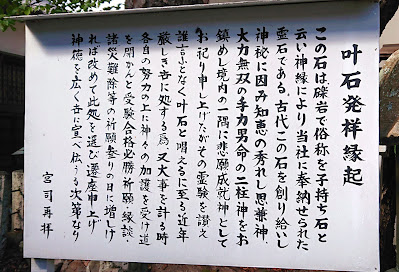 叶石発祥縁起
この石は、礫岩で俗称を子持ち石と
云い神縁により当社に奉納せられた
霊石である。古代この石を創り給いし
神秘に因み知恵の秀れし思兼神、
大力無双の手力男命の二柱神をお
鎮めし境内の一隅に悲願成就神として
お祀り申し上げたがその霊験を讃え
誰言ふとなく叶石と唱えるに至る近年
厳しき世に処する為、又大事を計る時
各自の努力の上に神々の加護を受け道
を開かんと受験合格必勝祈願、縁談・
諸災難除等の祈願参りの日に増しけ
れば改めて此処を選び遷座申上げ
神徳を広く世に宣べ伝うる次第なり
宮司再拝